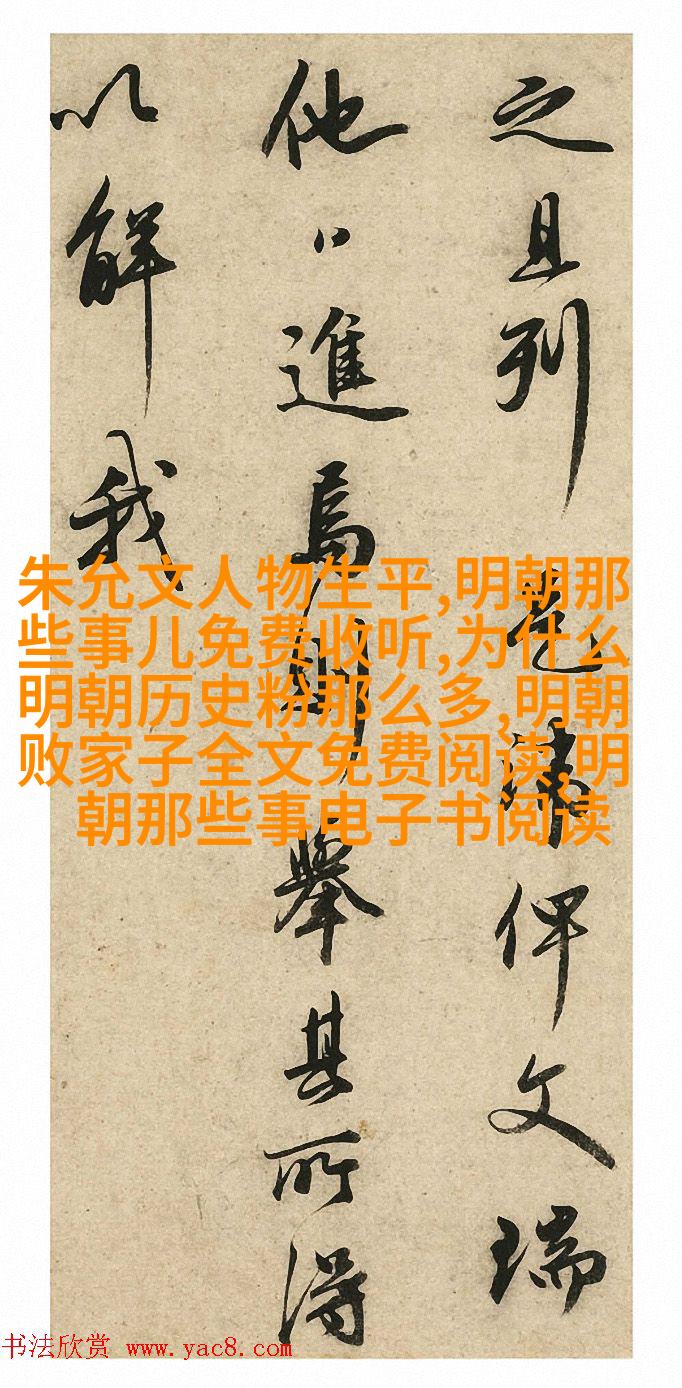 之且列是諱俾文瑞
他〻進爲卿舉其所得
以解我
朱允文人物生平,明朝那
些事儿免费收听,为什么
明朝历史粉那么多,明朝
败家子全文免费阅读,明
朝那些事电子书阅读
书法欣赏 www.yac8.com